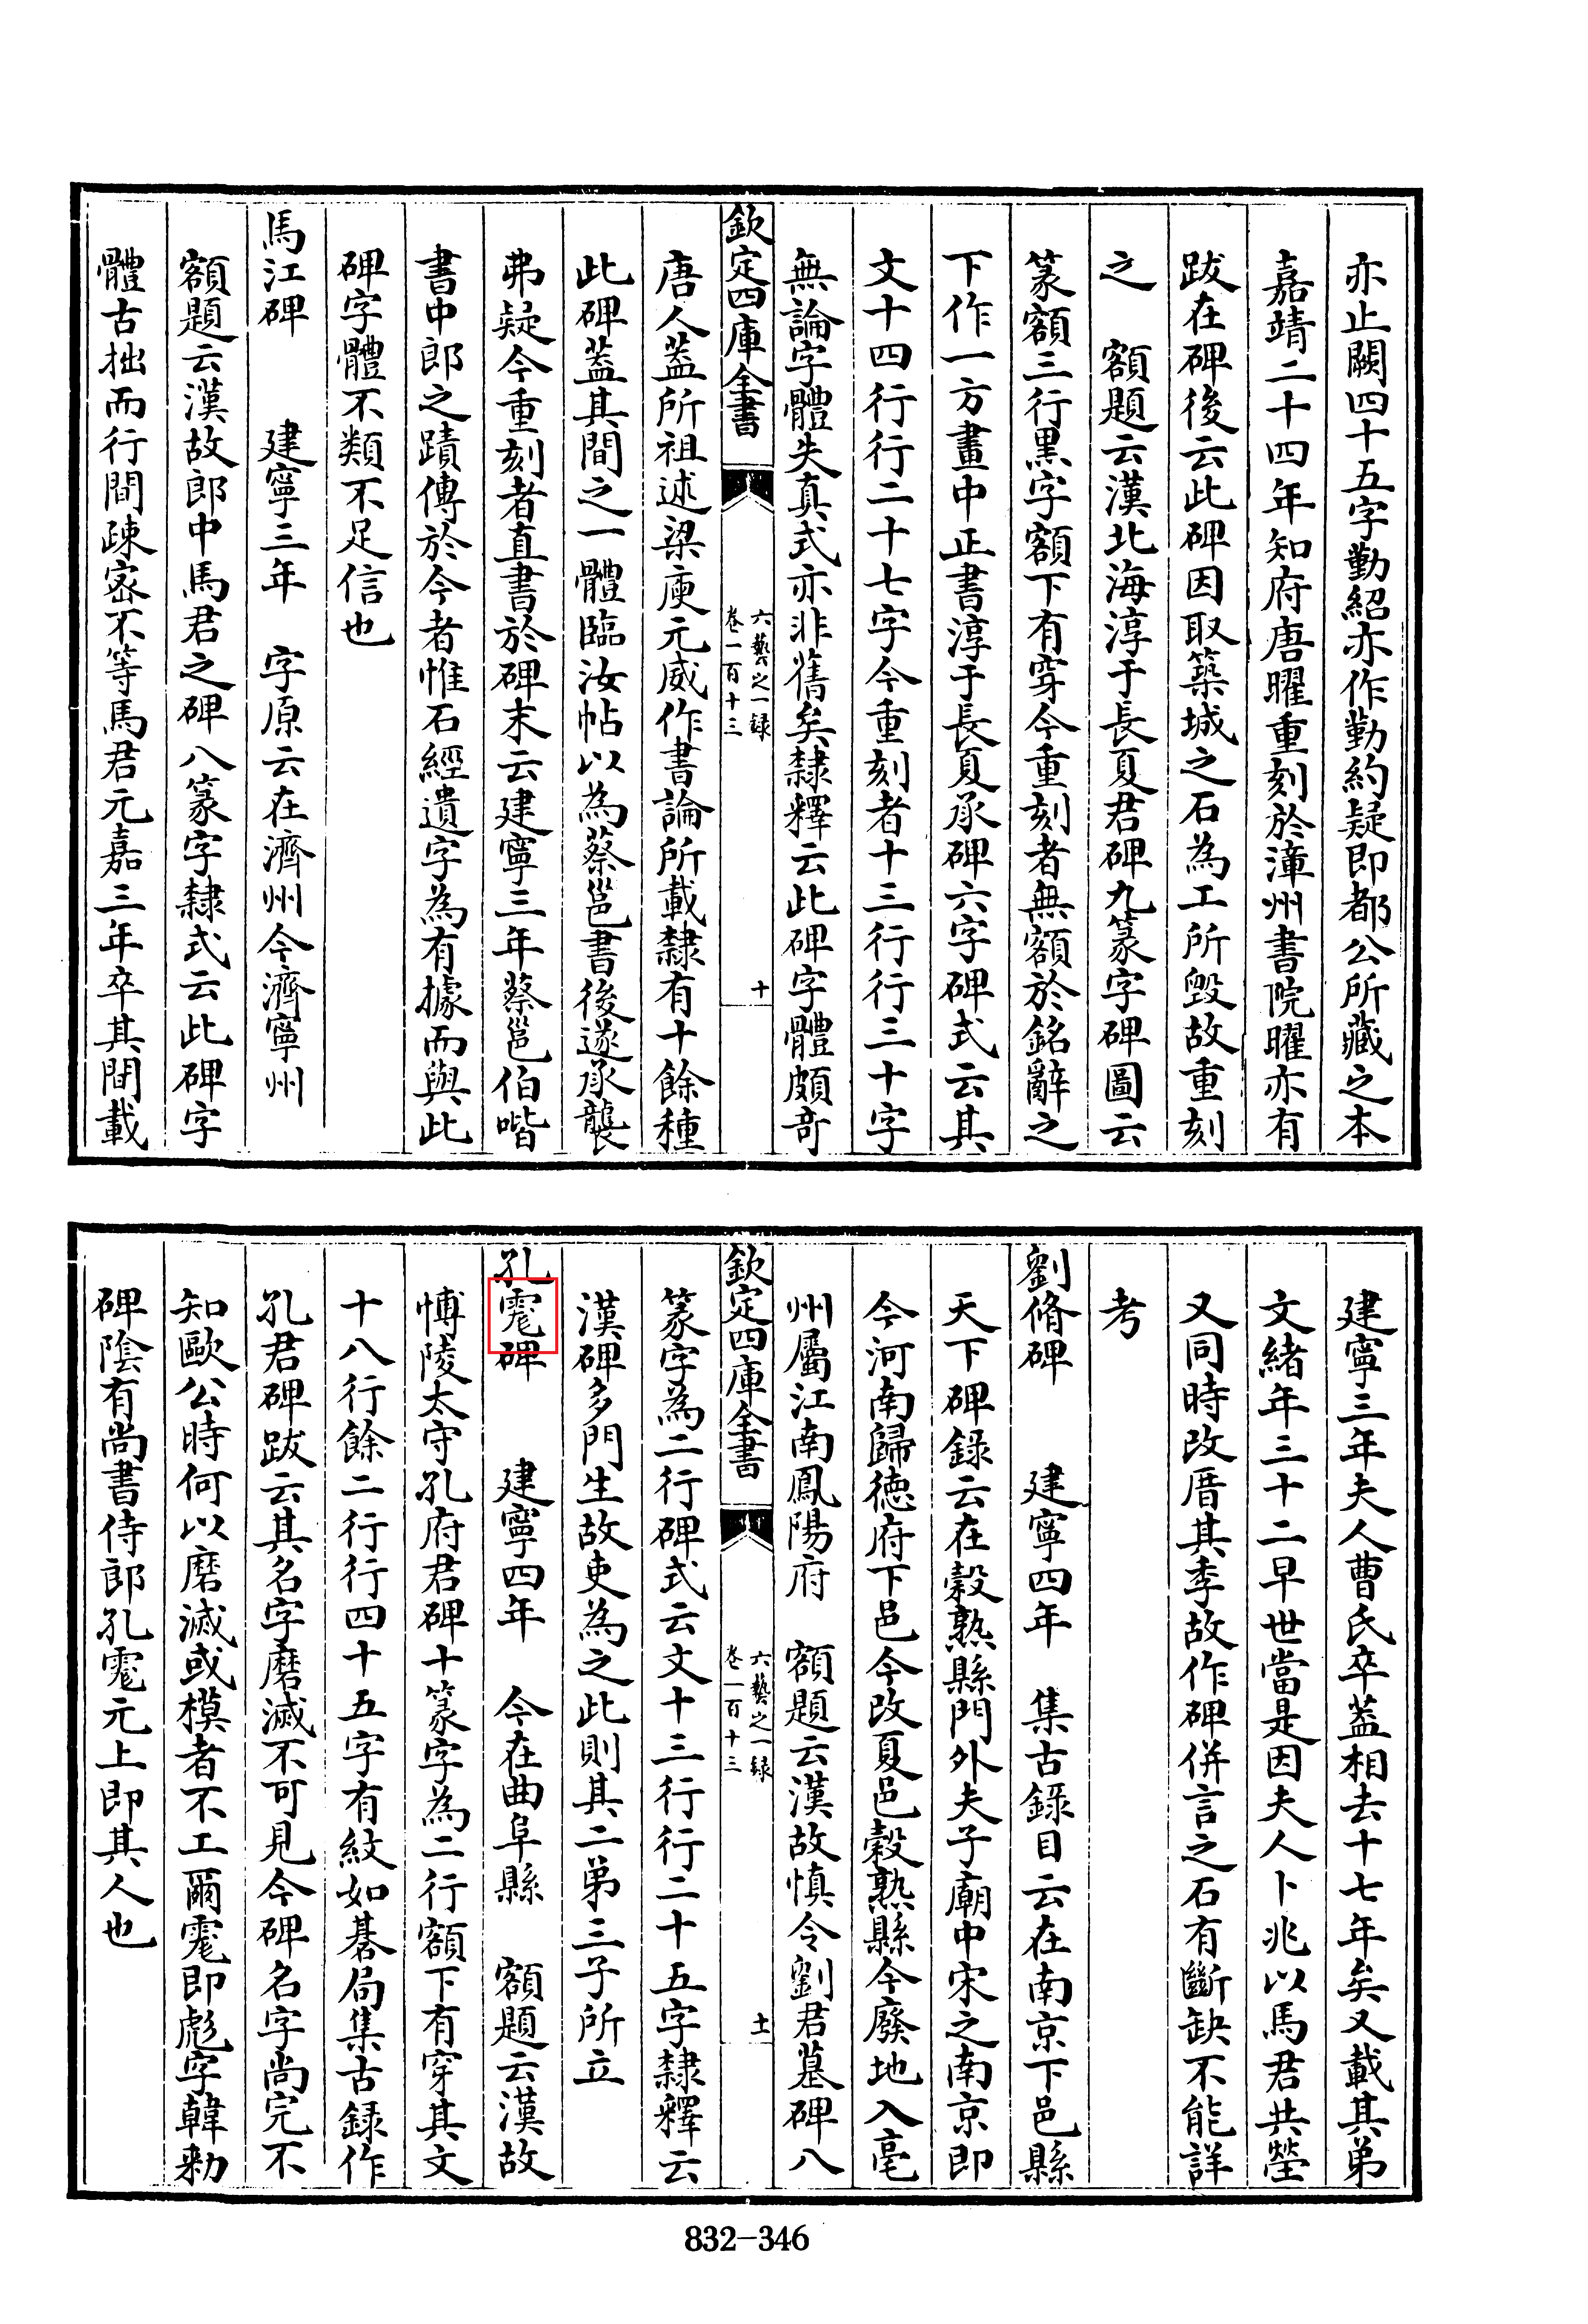 亦止闕四十五字勤紹亦作勤約疑即都公所藏之本
嘉靖二十四年知府唐曜重刻於漳州書院曜亦有
跋在碑後云此碑因取築城之石為工所毀故重刻
之　額題云漢北海淳于長夏君碑九篆字碑圖云
篆額三行黑字額下有穿今重刻者無額於銘辭之
下作一方畫中正書淳于長夏承碑六字碑式云其
文十四行行二十七字今重刻者十三行行三十字
無論字體失真式亦非舊矣隸釋云此碑字體頗奇
欽定四庫全書
六藝之一録
卷一百十三
十
唐人蓋所祖述梁庾元威作書論所載隸有十餘種
此碑蓋其間之一體臨汝帖以為蔡邕書後遂承襲
弗疑今重刻者直書於碑末云建寧三年蔡邕伯喈
書中郎之蹟傳於今者惟石經遺字為有據而與此
碑字體不類不足信也
馬江碑　建寧三年　字原云在濟州今濟寧州
額題云漢故郎中馬君之碑八篆字隸式云此碑字
體古拙而行間疎宻不等馬君元嘉三年卒其間載
建寧三年夫人曹氏卒蓋相去十七年矣又載其弟
文緒年三十二早世當是因夫人卜兆以馬君共塋
又同時改厝其季故作碑併言之石有斷缺不能詳
考
劉脩碑　建寧四年　集古錄目云在南京下邑縣
天下碑録云在穀熟縣門外夫子廟中宋之南京即
今河南歸徳府下邑今改夏邑穀熟縣今廢地入亳
州屬江南鳳陽府　額題云漢故慎令劉君墓碑八
欽定四庫全書
六藝之一録
卷一百十三
十一
篆字為二行碑式云文十三行行二十五字隸釋云
漢碑多門生故吏為之此則其二弟三子所立
孔雿碑　建寧四年　今在曲阜縣　額題云漢故
愽陵太守孔府君碑十篆字為二行額下有穿其文
十八行餘二行行四十五字有紋如碁局集古録作
孔君碑跋云其名字磨滅不可見今碑名字尚完不
知歐公時何以磨滅或模者不工爾雿即彪字韓勑
碑陰有尚書侍郎孔雿元上即其人也
832-346